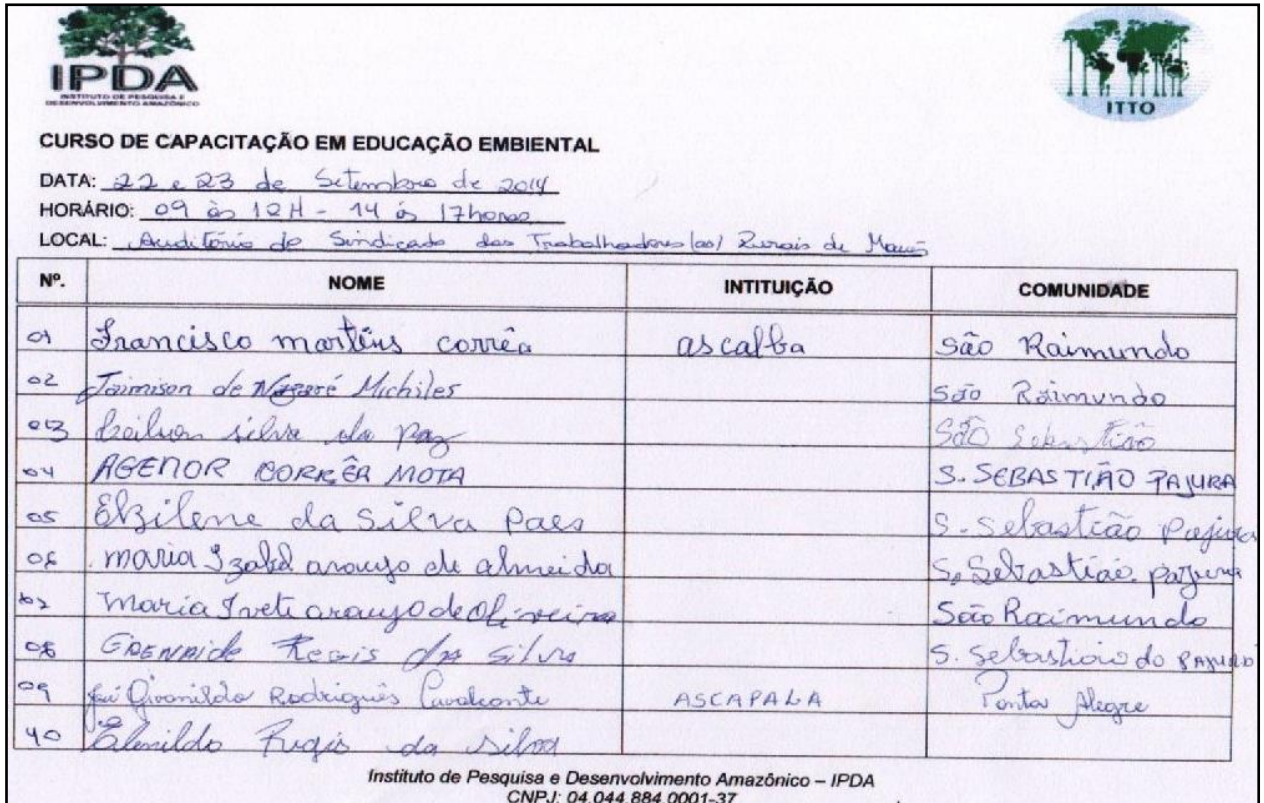 IPDA
INSTITUTO DE PESQUISA E
DESENVOLVIMENTO AMAZÔNICO
ITTO
CURSO DE CAPACITAÇÃO EM EDUCAÇÃO EMBIENTAL
DATA: 22 e 23 de Setembro de 2014
HORÁRIO: 09 às 12H - 14 às 17horas
LOCAL: Auditório do Sindicado dos Trabalhadores(as) Rurais de Maués
Nº. NOME INTITUIÇÃO COMUNIDADE
01 Francisco martins corrêa ascalba São Raimundo
02 Jaimison de Nazaré Michiles São Raimundo
03 silva da Paz São Sebastião
04 AGENOR CORRÊA MOTA S. SEBASTIÃO PAJURA
05 Elzilene da Silva Paes S. Sebastião Pajura
06 maria Izabel araujo de almeida S. Sebastião pajura
07 maria Ivete araujo de Oliveira São Raimundo
08 Regis da Silva S. Sebastião do PAJURÁ
09 José Givanildo Rodrigues Cavalcante ASCAPALA Ponta Alegre
10 Elenildo Regis da silva
Instituto de Pesquisa e Desenvolvimento Amazônico – IPDA
CNPJ: 04.044.884.0001-37